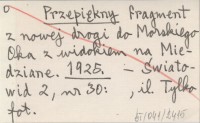 Przepiękny fragment
z nowej drogi do Morskiego
Oka z widokiem na Mie-
dziane. 1925. – Świato-
wid 2, nr 30: , il. Tylko
fot.